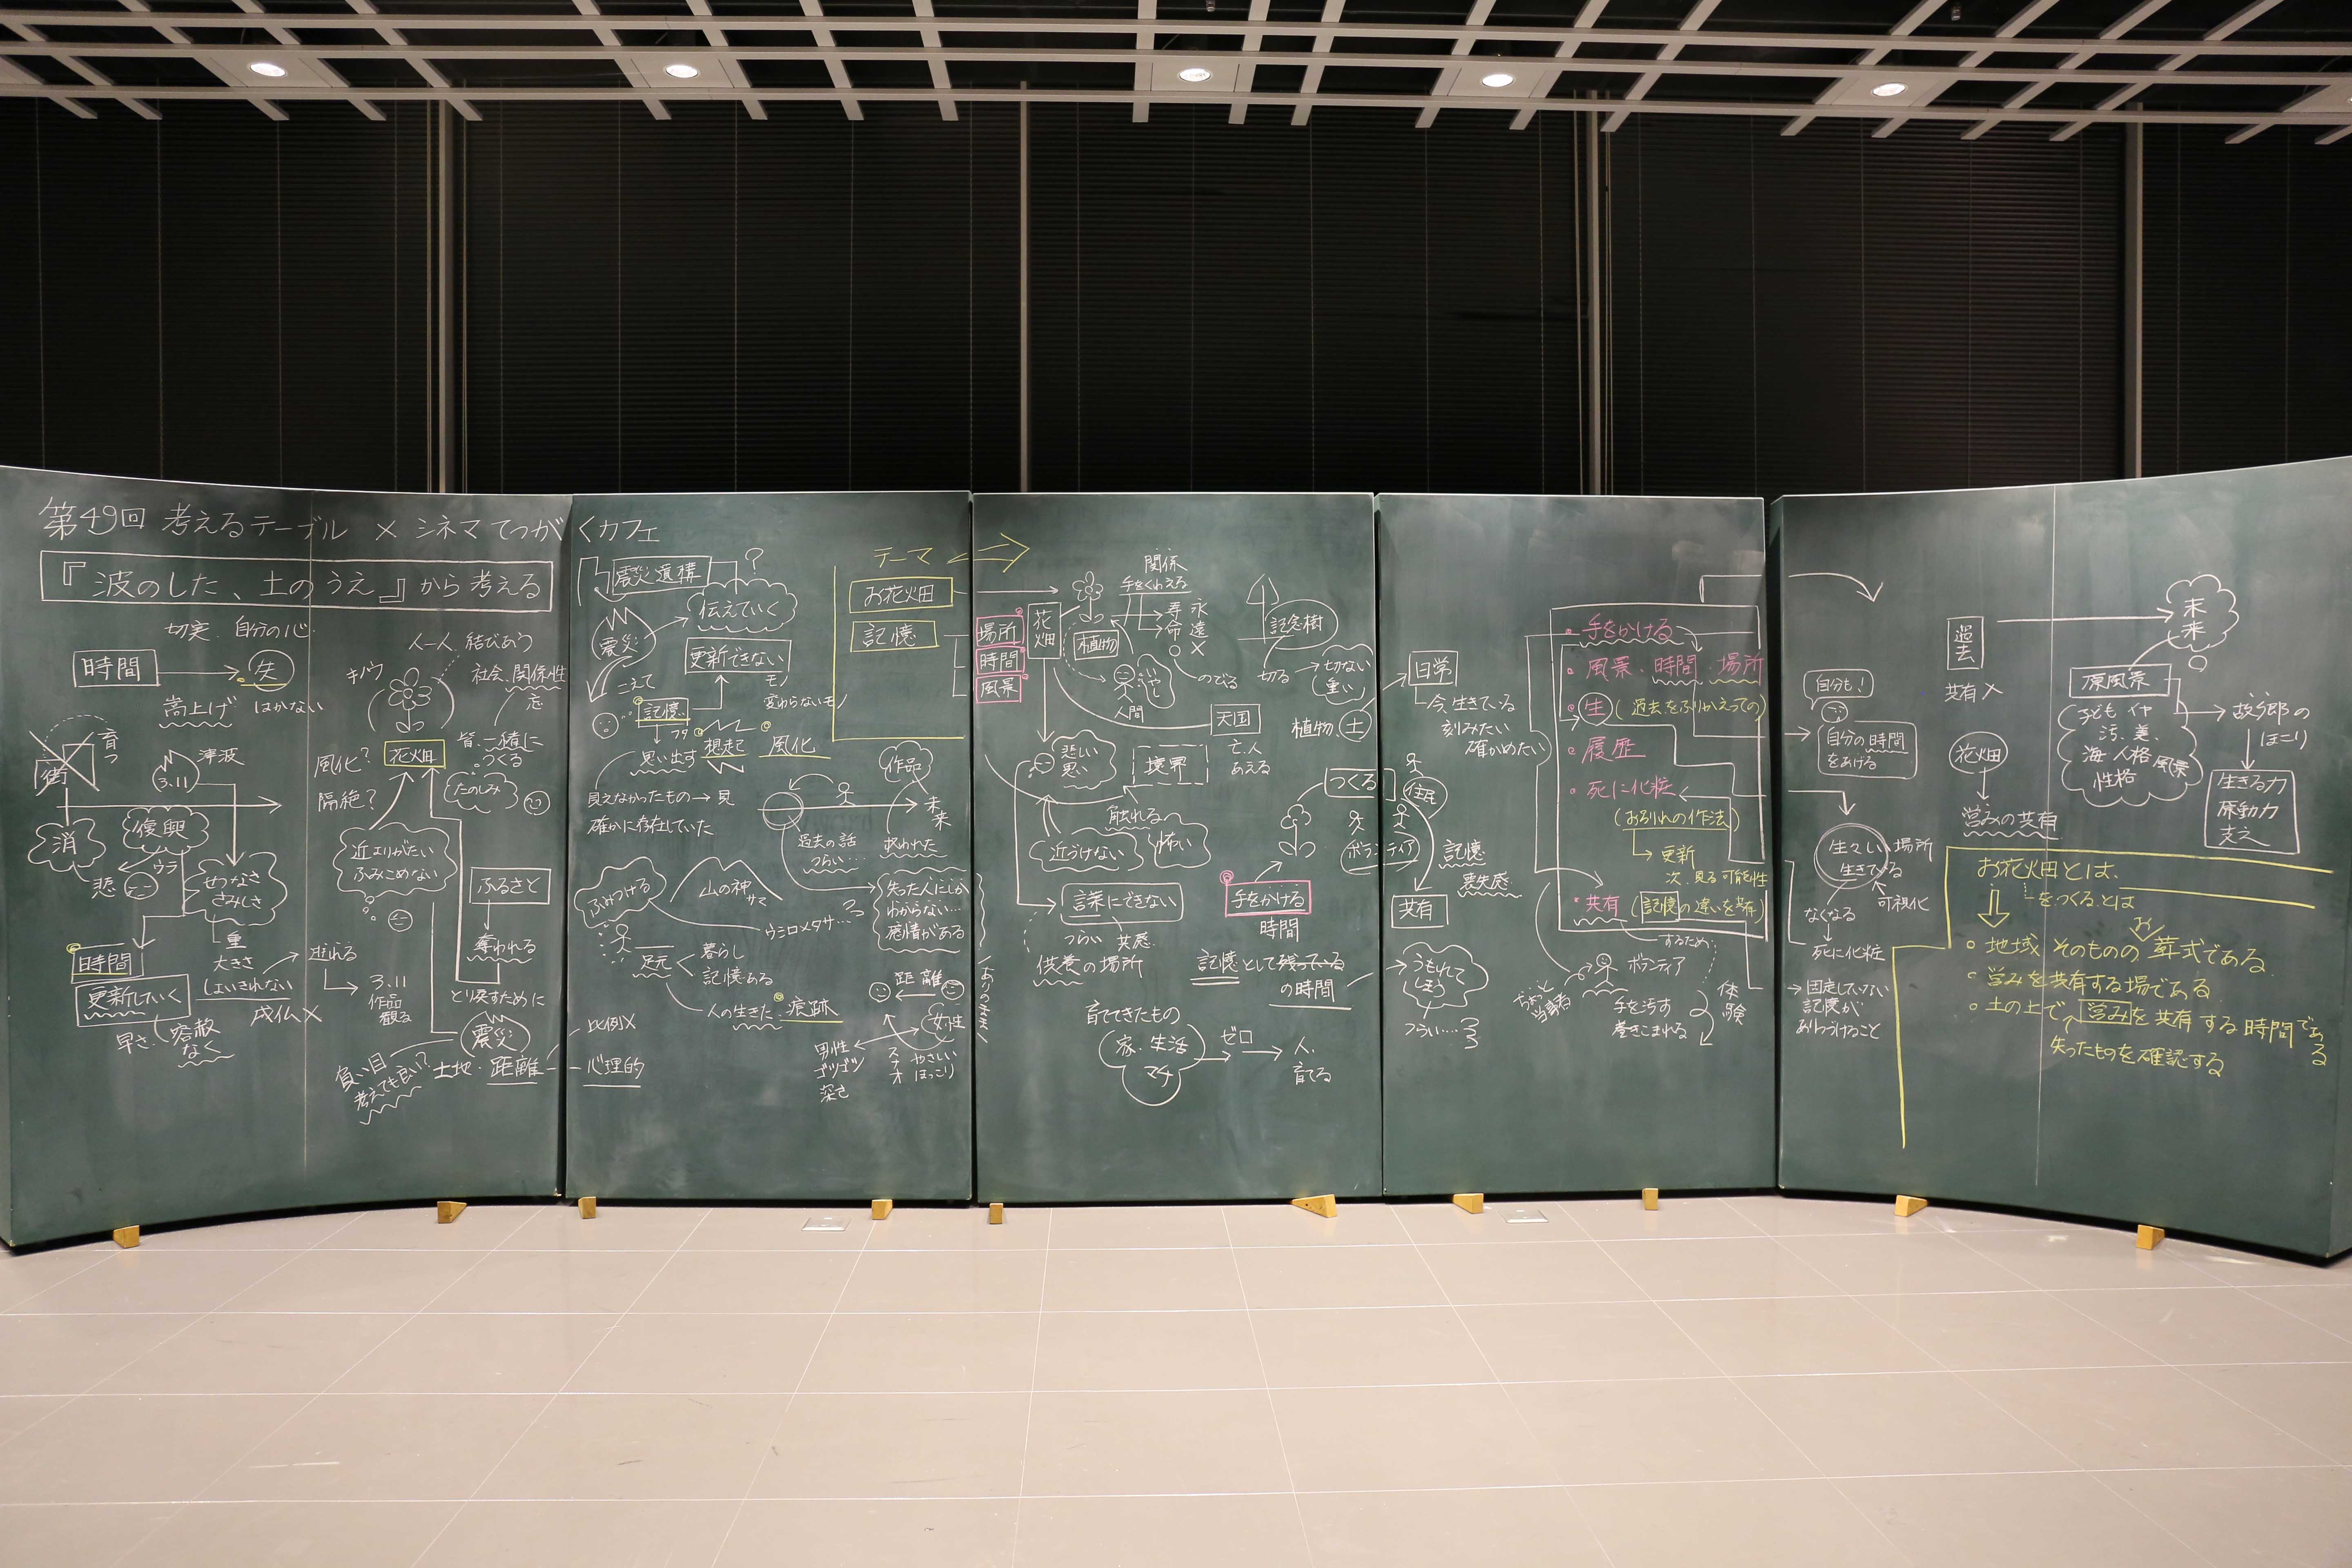 第49回 考えるテーブル × シネマてつがくカフェ
『波のした、土のうえ』から考える
切実 自分の心
時間
失
嵩上げ
はかない
育つ
街
津波
3.11
消
復興
ウラ
悲
せつなさ
さみしさ
重
大きさ
しょいきれない
成仏×
時間
更新していく
早さ
容赦
なく
逃れる
3.11
作品
観る
人一人 結びあう
キノウ
社会、関係性
忘
風化?
隔絶?
花火田
皆一緒に
つくる
たのしみ
近よりがたい
ふみこめない
ふるさと
奪われる
とり戻すために
震災
負い目
考えても良い?
土地・距離
比例×
心理的
震災遺構
?
伝えていく
震災
更新できない
モノ
変わらないモノ
こえて
記憶
想起
風化
思い出す
見えなかったもの→見
確かに存在していた
作品
未来
過去の話
つらい…
救われた
ふみつける
山の神
サマ
ウシロメタサ…
足元
暮らし
記憶ある
人の生きた痕跡
失った人にしか
わからない…
感情がある
距離
女性
男性
ゴツゴツ
深さ
スナオ
やさしい
ほっこり
ありのまま
テーマ
お花畑
記憶
場所
時間
風景
花畑
植物
関係
手をくわえる
寿命
永遠
×
のびる
いやし
人間
記念樹
切る
切ない
重い
天国
亡人
あえる
植物、土
悲しい
思い
境界
触れる
怖い
近づけない
言葉にできない
つらい 共感
供養の場所
つくる
ボランティア
手をかける
時間
記憶として残っている
の時間
育ててきたもの
家、生活
マチ
ゼロ
人、
育てる
日常
今、生きている
刻みたい
確かめたい
住民
記憶
喪失感
共有
うもれて
しまう
つらい…
手をかける
風景、時間、場所
生(過去をふりかえっての)
履歴
死に化粧
(お別れの作法)
更新
次、見る可能性
共有(記憶の違いを共有)
するため
ボランティア
当事者
手を汚す
巻きこまれる
体験
自分も!
自分の時間
をあげる
生々しい場所
生きている
可視化
なくなる
死に化粧
固定していない
記憶が
ありつづけること
過去
共有×
未来
原風景
子ども イヤ
汚、美、
海 人格 風景
性格
故郷の
ほこり
生きる力
原動力
支え
花畑
営みの共有
お花畑とは、
をつくる、とは
お
地域 そのものの 葬式である
営みを共有する場である
土の上で 営みを共有する時間である
失ったものを確認する